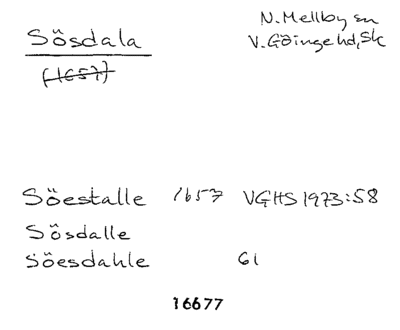 Sösdala
N. Mellby sn
V. Göinge hd, Sk
(1657)
Söestalle 1657 VGHS 1973:58
Sösdalle
Söesdahle 61
16677